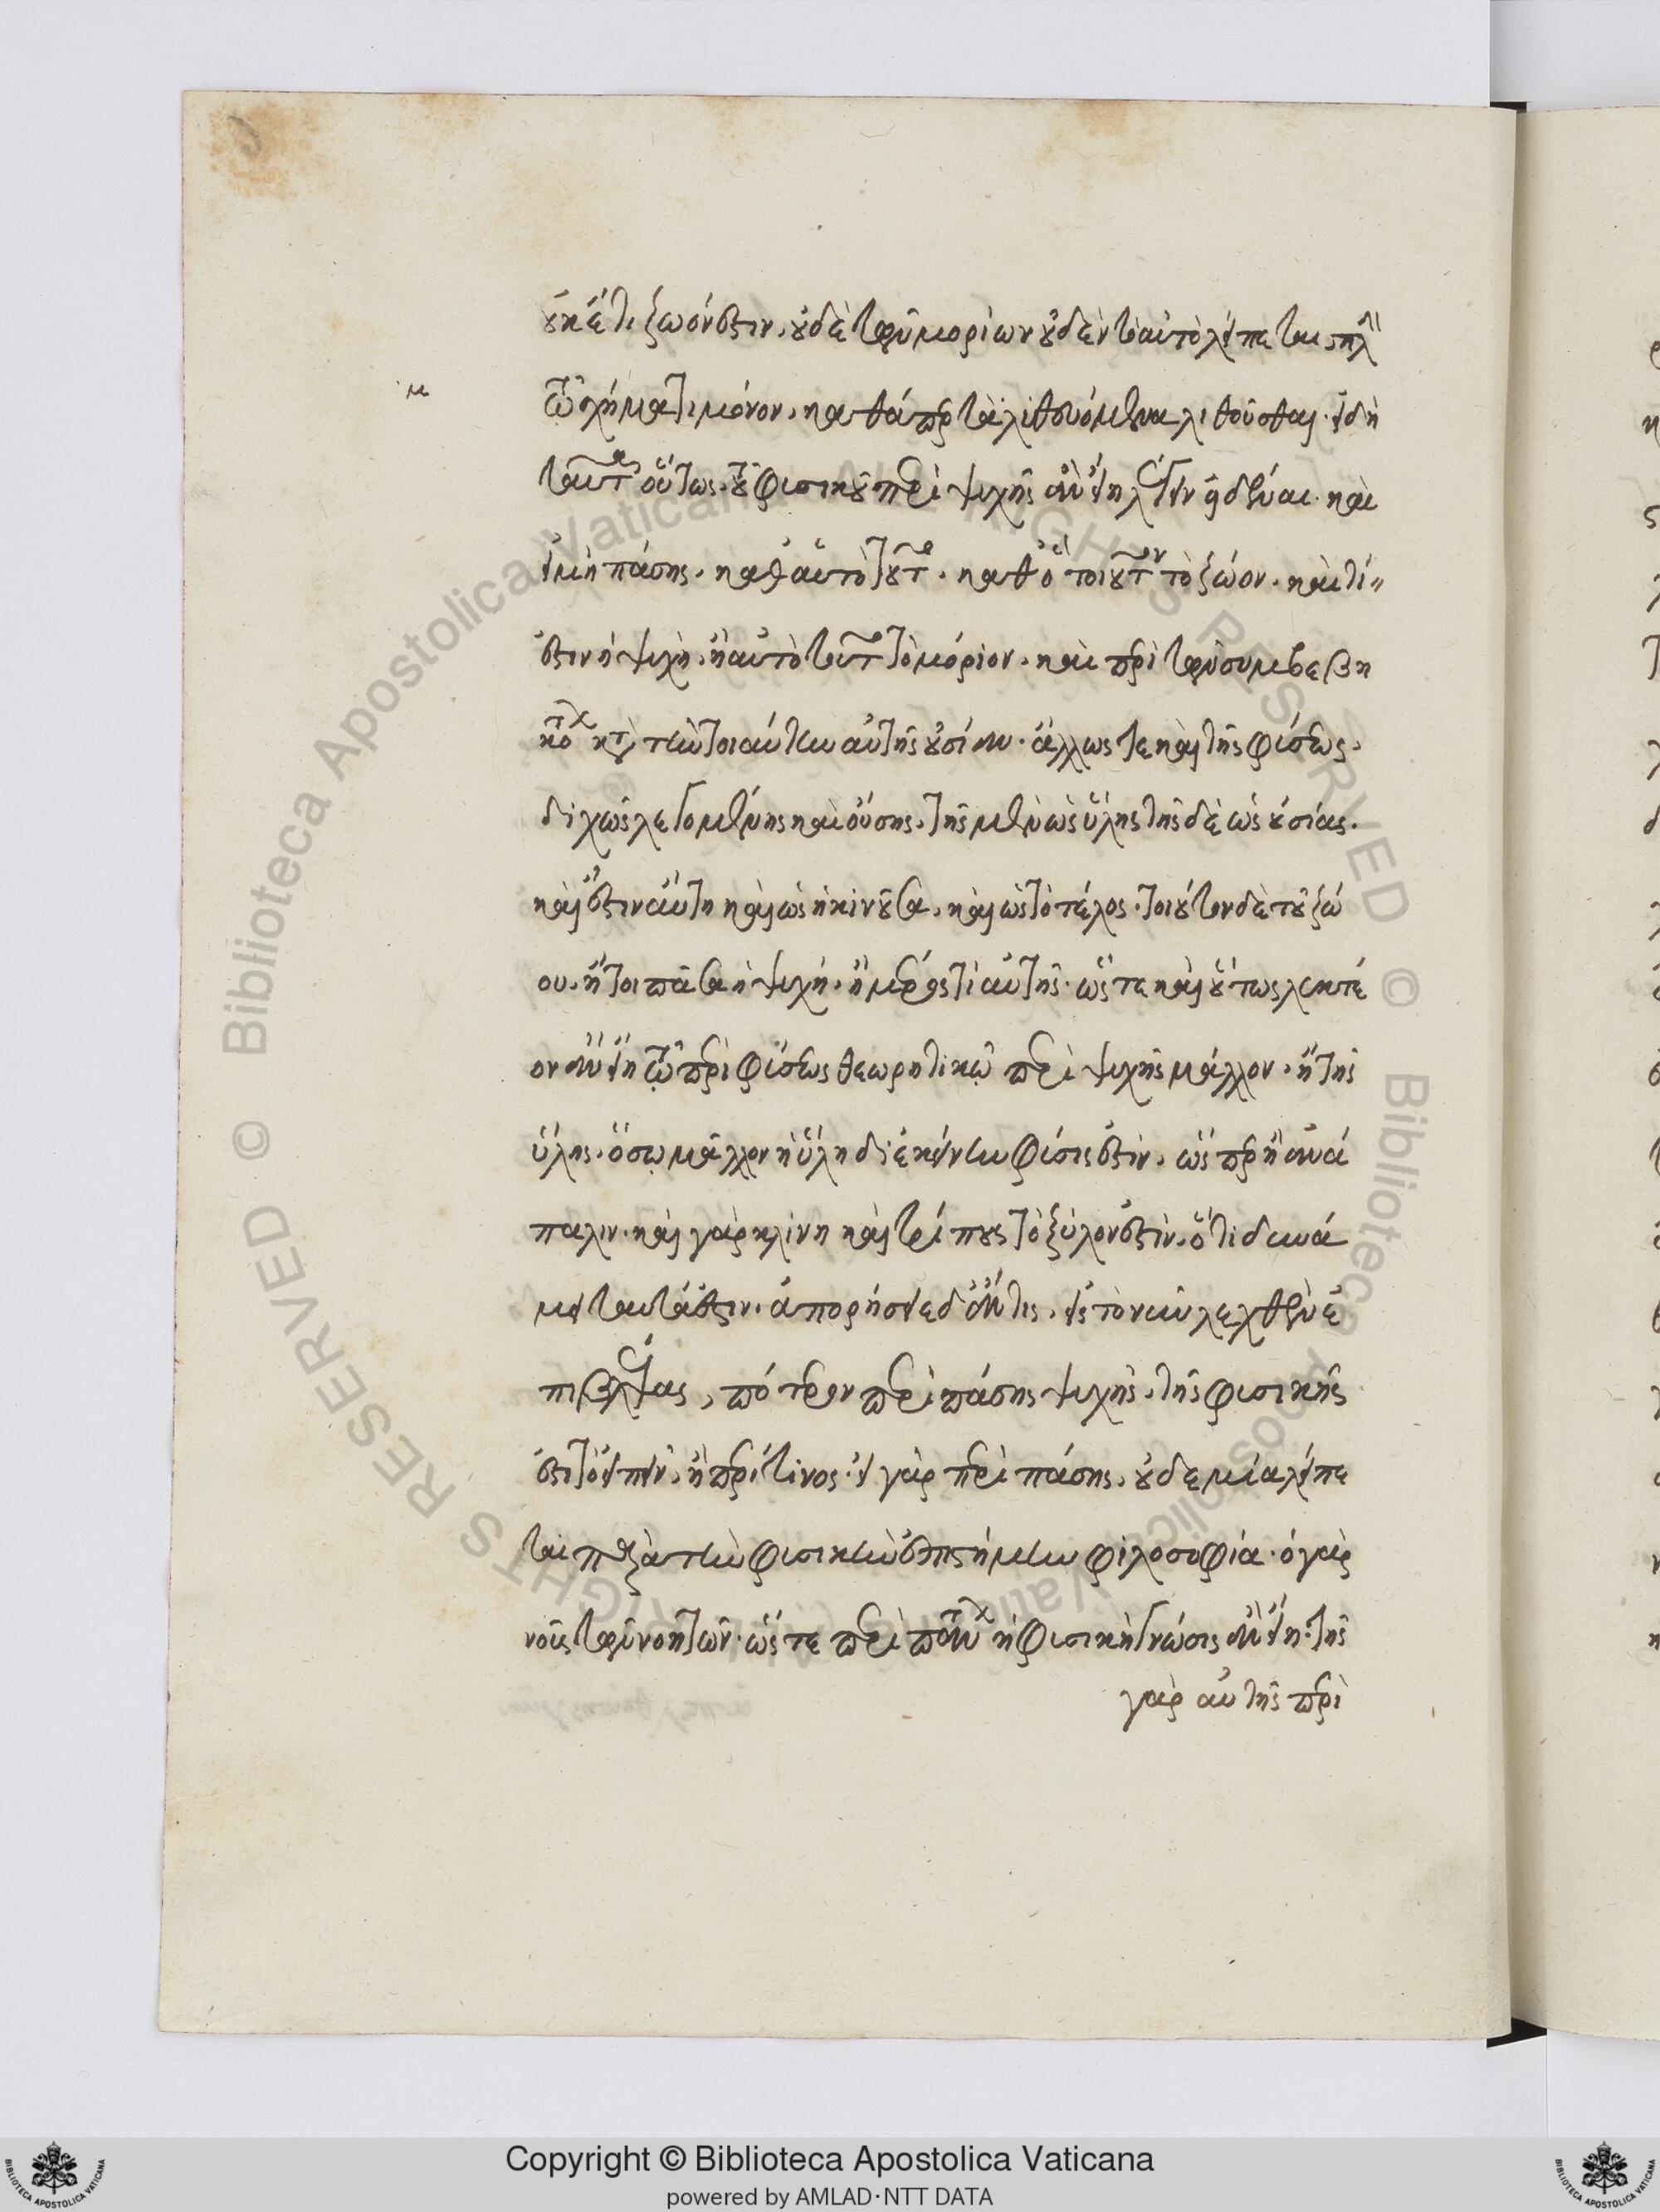 οὐκέτι ζῶόν ἐστιν, οὐδὲ τῶν μορίων οὐδὲν τὸ αὐτὸ λείπεται, πλὴν
τῷ σχήματι μόνον, καθάπερ τὰ λιθευόμενα λιθοῦσθαι. εἰ δὴ
ταῦτα οὕτως, τοῦ φυσικοῦ περὶ ψυχῆς ἂν εἴη λέγειν καὶ εἰδέναι. καὶ
εἰ μὴ πάσης, καθ' αὐτὸ τοῦτο, καθ' ὃ τοιοῦτον τὸ ζῶον. καὶ τί
ἐστιν ἡ ψυχὴ, ἢ αὐτὸ τοῦτο τὸ μόριον. καὶ περὶ τῶν συμβεβη
κότων κατὰ τὴν τοιαύτην αὐτῆς οὐσίαν. ἄλλως τε καὶ τῆς φύσεως,
διχῶς λεγομένης καὶ οὔσης, τῆς μὲν ὡς ὕλης τῆς δὲ ὡς οὐσίας.
καὶ ἔστιν αὕτη καὶ ὡς ἡ κινοῦσα, καὶ ὡς τὸ τέλος. τοιοῦτον δὲ τοῦ ζώ
ου, ἤτοι πᾶσα ἡ ψυχή, ἢ μέρος τι αὐτῆς. ὥστε καὶ οὕτως λεκτέ
ον ἂν εἴη τῷ περὶ φύσεως θεωρητικῷ περὶ ψυχῆς μᾶλλον, ἢ τῆς
ὕλης. ὅσῳ μᾶλλον ἡ ὕλη δι' ἐκείνην φύσις ἐστὶν, ὥσπερ ἢ ἀνά
παλιν. καὶ γὰρ κλίνη καὶ τρίπους τὸ ξύλον ἐστὶν, ὅτι δυνά
μει ταῦτά ἐστιν. ἀπορήσειε δ' ἄν τις, εἰς τὸ νῦν λεχθὲν ἐ
πιβλέψας, πότερον περὶ πάσης ψυχῆς, τῆς φυσικῆς
ἐστι τὸ εἰπεῖν, ἢ περί τινος. εἰ γὰρ περὶ πάσης, οὐδεμία λείπε
ται παρὰ τὴν φυσικὴν ἐπιστήμην φιλοσοφία. ὁ γὰρ
νοῦς τῶν νοητῶν. ὥστε περὶ πάντων ἡ φυσικὴ γνῶσις ἂν εἴη. τῆς
γὰρ αὐτῆς περὶ
Copyright © Biblioteca Apostolica Vaticana
powered by AMLAD·NTT DATA